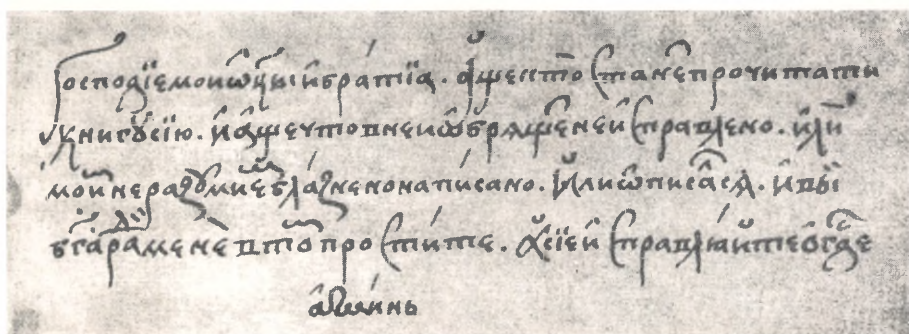 Господїе мои ѿцы и братїа. аще кто станетъ прочитати
книгу сїю. и аще что в неи ѡбрящете неисправлено. или
моим неразумиемъ блазнено написано. Или ѡписася. и вы
бга ради мене в том простите. а сїе исправляйте ѡ гдѣ
аминь